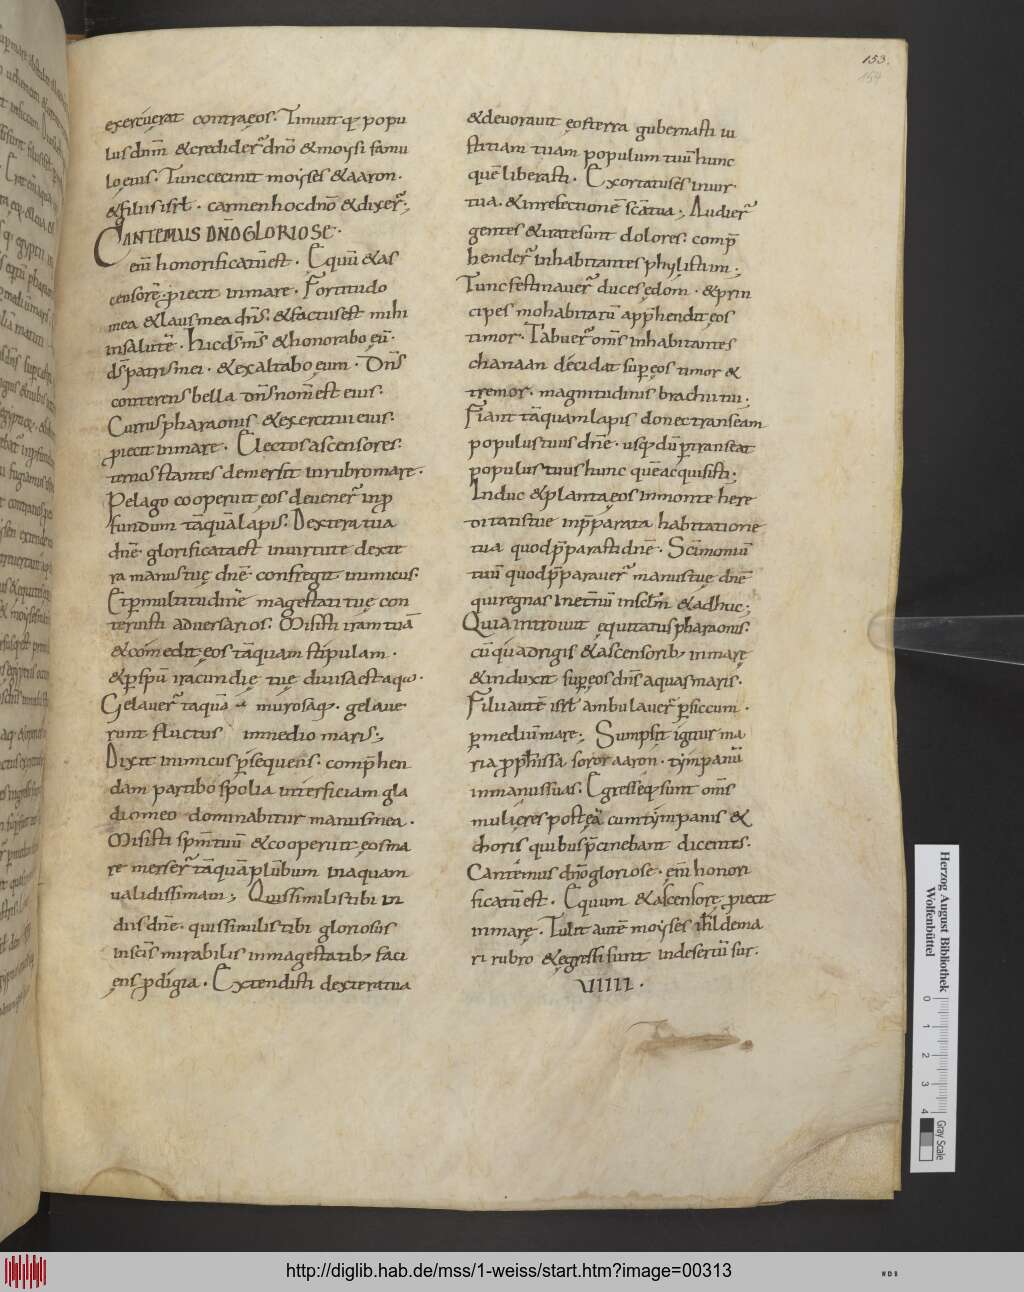 153.
154
exercuerat contra eos. Timuit q; popu
lus dnm̄ & credider̄ dnō & moysi famu
lo eius. Tunc cecinit moyses & aaron.
& filii isrł. carmen hoc dnō & dixer̄;
CANTEMUS DN̄O GLORIOSE.
eni̅ honorificatu̅ est. Equu̅ & as
censore̅ piecit in mare. Fortitudo
mea & laus mea dn̄s. & factus est mihi
in salute̅. hic ds̄ ms̄ & honorabo eu̅.
ds̄ patris mei. & exaltabo eum. Dn̄s
conterens bella dn̄s nom̄ est eius.
Currus pharaonis & exercitui eius.
piecit in mare. Electos ascensores.
ternos stantes demersit in rubro mare.
Pelago cooperuit eos devener̄ in p
fundum ta̅qua̅ lapis. Dextera tua
dne̅. glorificata est in uirtute dexte
ra manus tuę dne̅. confregit inimicus.
Et p multitudine̅ magestati tuę con
teruisti adversarios. Misisti iram tua̅
& comedit eos ta̅quam stipulam.
& p spu̅ iracundię tuę divisa est aqua.
Gelaver̄ ta̅qua̅ muros aq. gelave
runt fluctus in medio maris;
Dixit inimicus p̄sequens. comp̄hen
dam partibo spolia interficiam gla
dio meo dominabitur manus mea.
Misisti spm̄ tuu̅ & cooperuit eos ma
re merser̄ ta̅qua̅ plu̅bum in aquam
ualidissimam; Quis similis tibi in
diis dne̅. quis similis tibi gloriosus
in scis̄ mirabilis in magestatib; faci
ens pdigia. Extendisti dextera tua
& devoravit eos terra gubernasti iu
stitiam tuam populum tuu̅ hunc
que̅ liberasti. Exortatus es in uir
tua. & in refectione̅ sc̄a tua; Audier̄
gentes & irate sunt dolores. comp̄
hender̄ inhabitantes phylistiim;
Tunc festinaver̄ duces edom. & prin
cipes mohabitaru̅ app̄hendit eos
timor. Tabuer̄ oms̄ inhabitantes
chanaan decidat sup eos timor &
tremor. magnitudinis brachii tui;
Fiant ta̅quam lapis donec transeam
populus tuus dne̅. usq; du̅ p transeat
populus tuus hunc que̅ acquisisti;
Induc & planta eos in monte here
ditatis tue in p̄parata habitatione
tua quod p̄parasti dne̅. Sc̄imoniu̅
tuu̅ quod p̄paraver̄ manus tuę dne̅
qui regnas in etnu̅ in sclm̄ & adhuc;
Quia introivit equitatus pharaonis.
cu̅ quadrigis & ascensorib; in mare
& induxit sup eos dn̄s aquas maris.
Filii aute̅ isrł ambulaver̄ p siccum.
p mediu̅ mare; Sumpsit igitur ma
ria pph̄issa soror aaron. tympanu̅
in manus suas. Egresseq; sunt oms̄
mulieres post ea̅ cum tympanis &
choris quibus p̄cinebant dicentes.
Cantemus dn̄o gloriose. eni̅ honori
ficatu̅ est. Equum & ascensore piecit
in mare. Tulit aute̅ moyses ihl̄ de ma
ri rubro & egressi sunt in desertu̅ sur.
VIIII.
Herzog August Bibliothek
Wolfenbüttel
0 1 2 3 4
Gray Scale
http://diglib.hab.de/mss/1-weiss/start.htm?image=00313